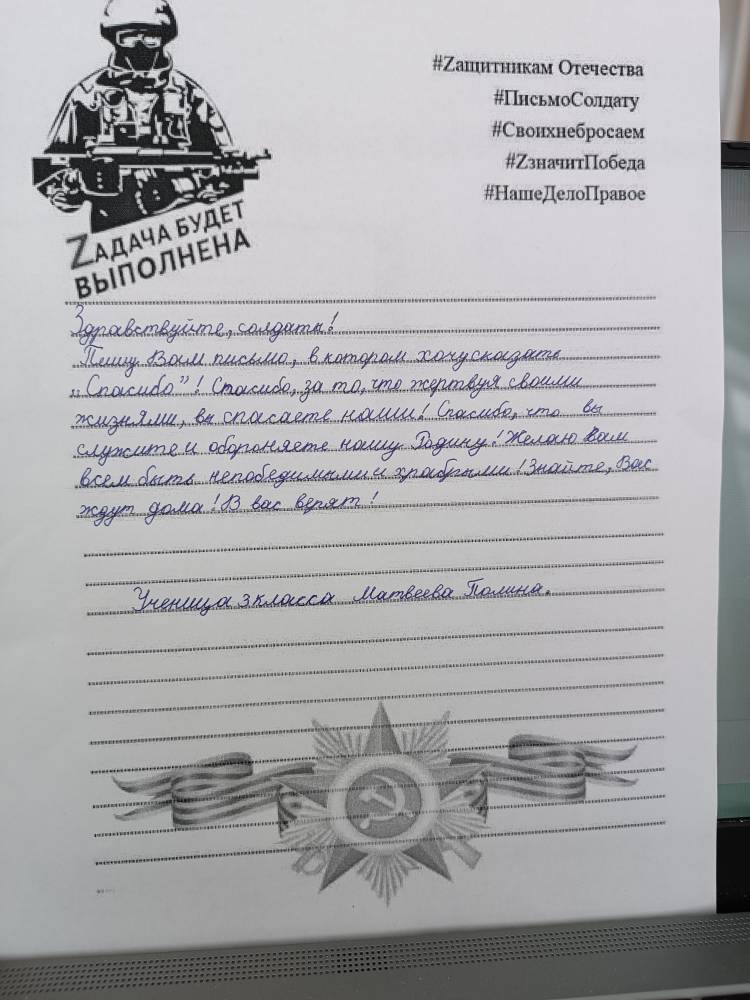 #Zащитникам Отечества
#ПисьмоСолдату
#Своихнебросаем
#ZзначитПобеда
#НашеДелоПравое
ZАДАЧА БУДЕТ
ВЫПОЛНЕНА
Здравствуйте, солдаты!
Пишу Вам письмо, в котором хочу сказать
„Спасибо”! Спасибо, за то, что жертвуя своими
жизнями, вы спасаете наши! Спасибо, что вы
служите и обороняете нашу Родину! Желаю Вам
всем быть непобедимыми и храбрыми! Знайте, Вас
ждут дома! В вас верят!
Ученица 3 класса Матвеева Полина.